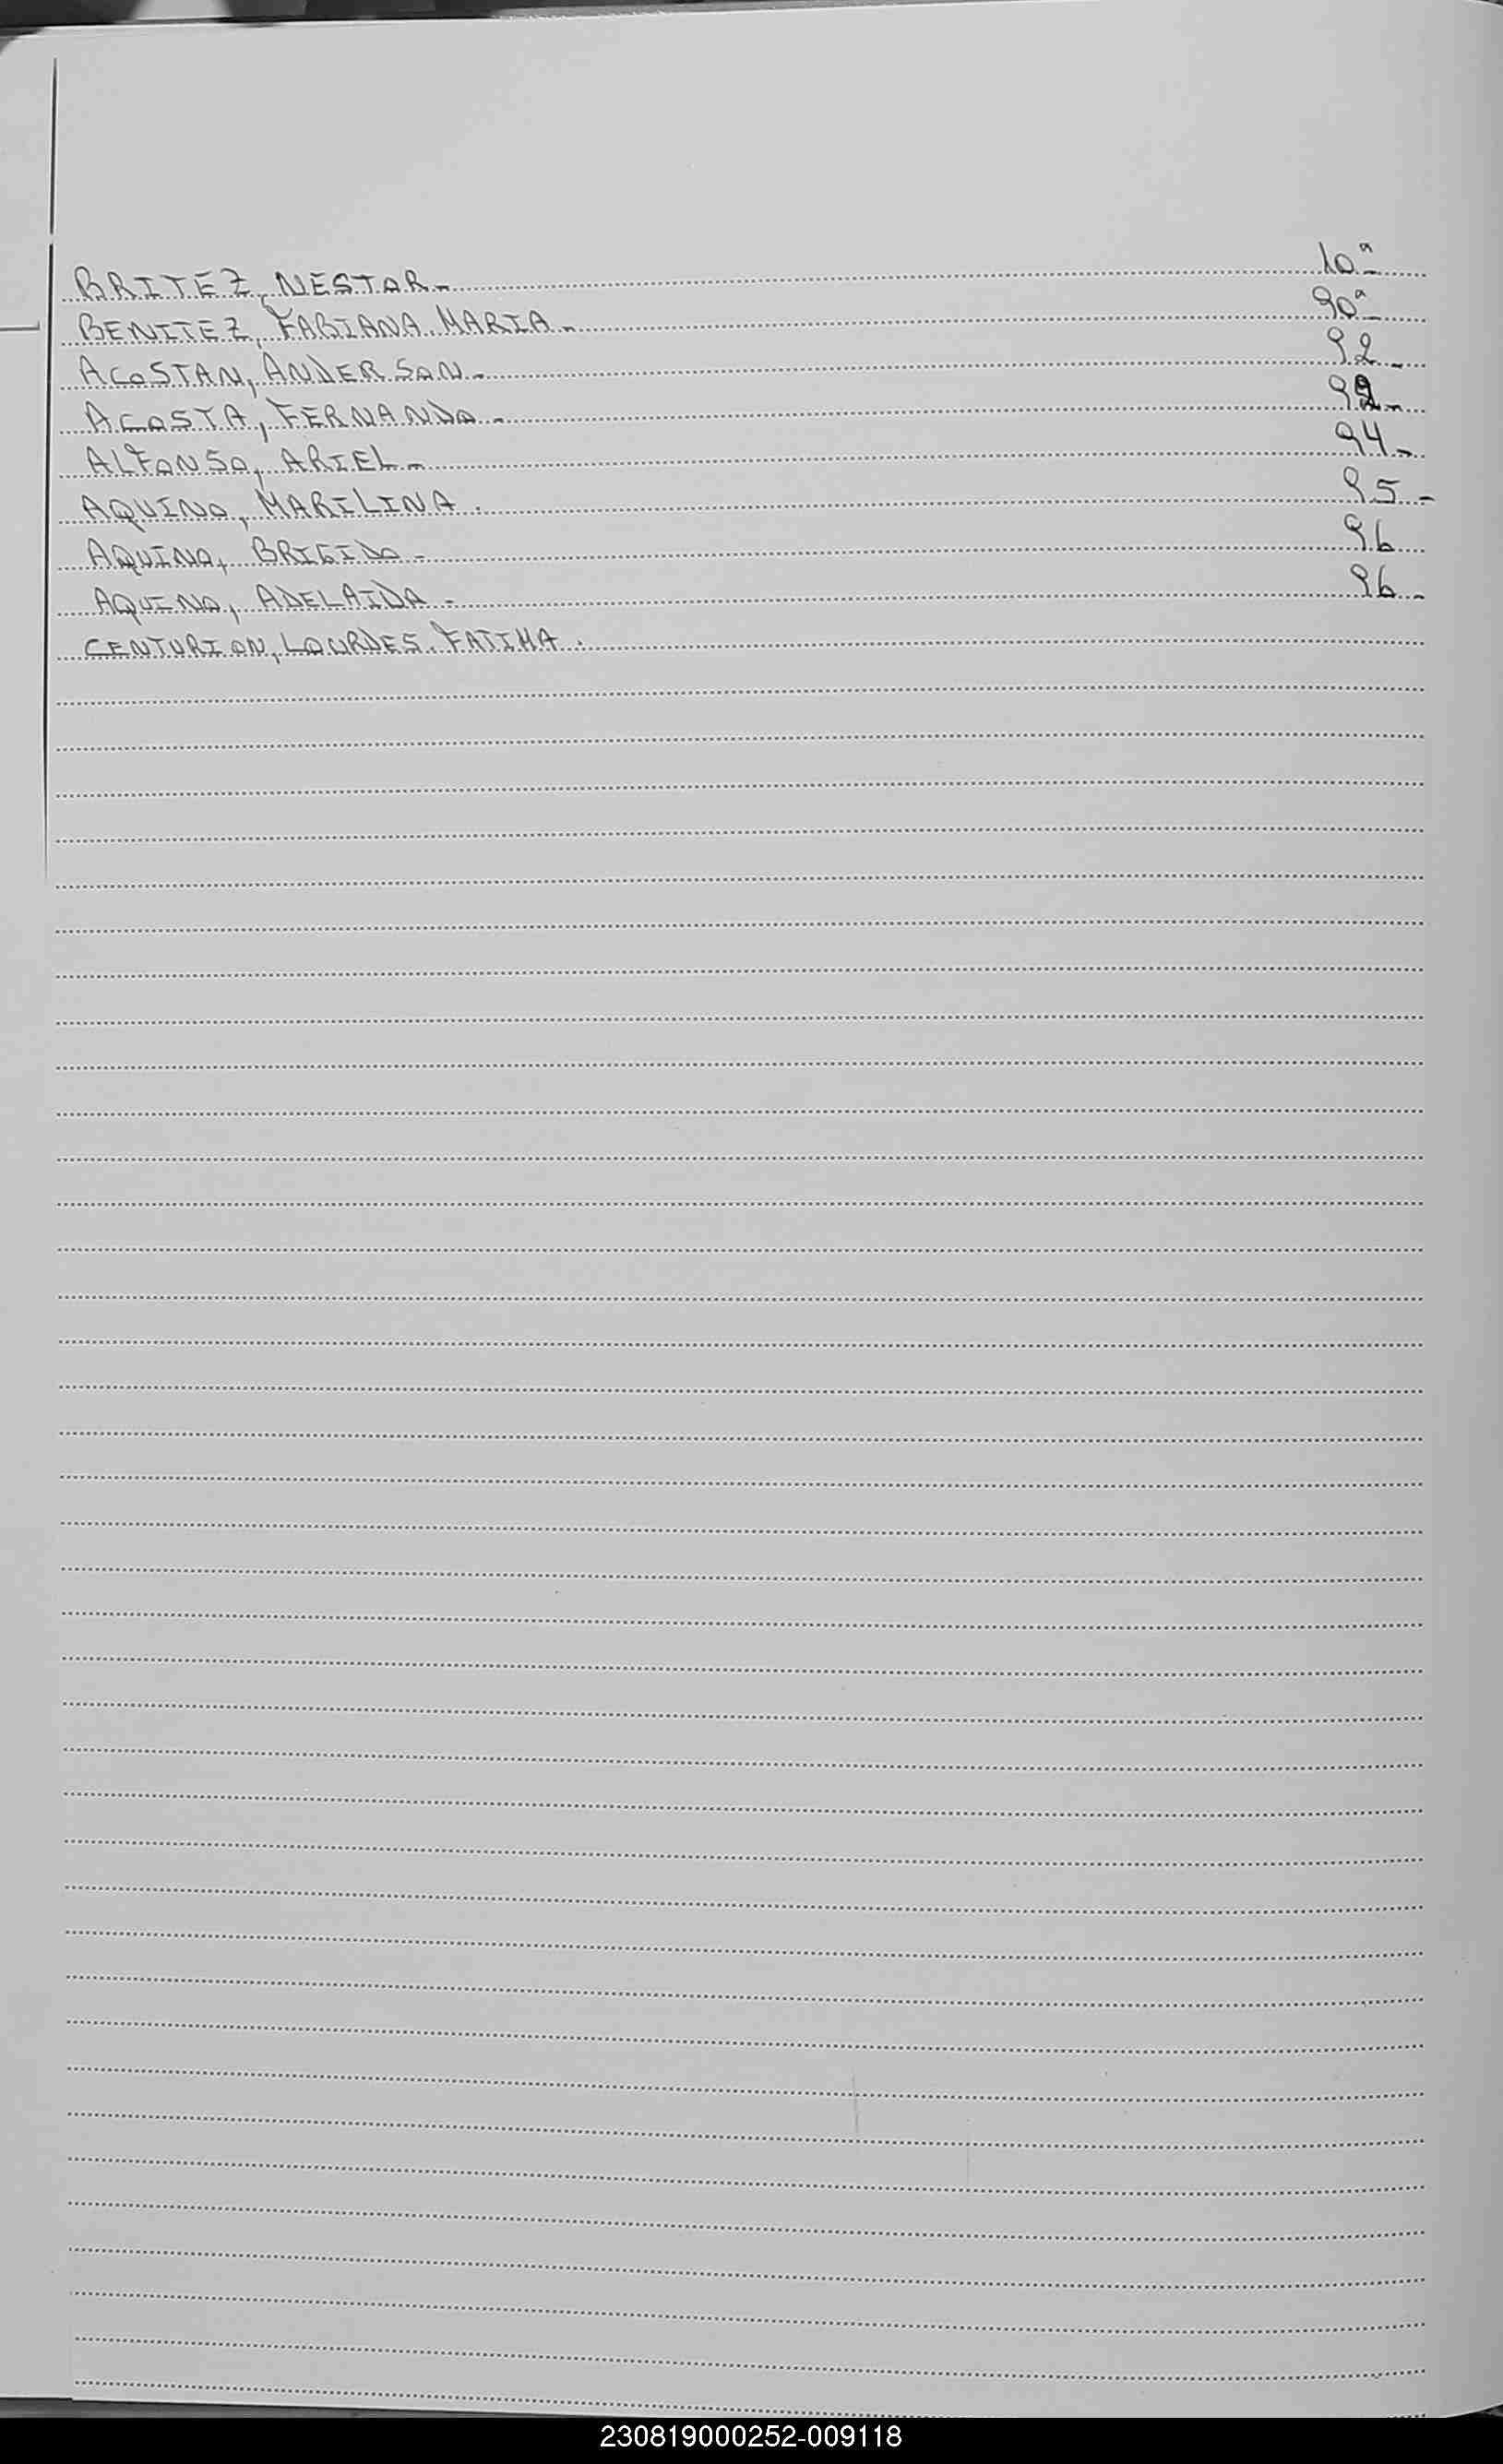 BRITEZ, NESTOR.- 10ª-
BENITEZ, FABIANA MARIA.- 90ª-
ACOSTAN, ANDERSON.- 92-
ACOSTA, FERNANDO.-
ALFONSO, ARIEL.- 94-
AQUINO, MARILINA. 95-
AQUINO, BRIGIDO.- 96
AQUINO, ADELAIDA.- 96-
CENTURION, LOURDES FATIMA.
230819000252-009118